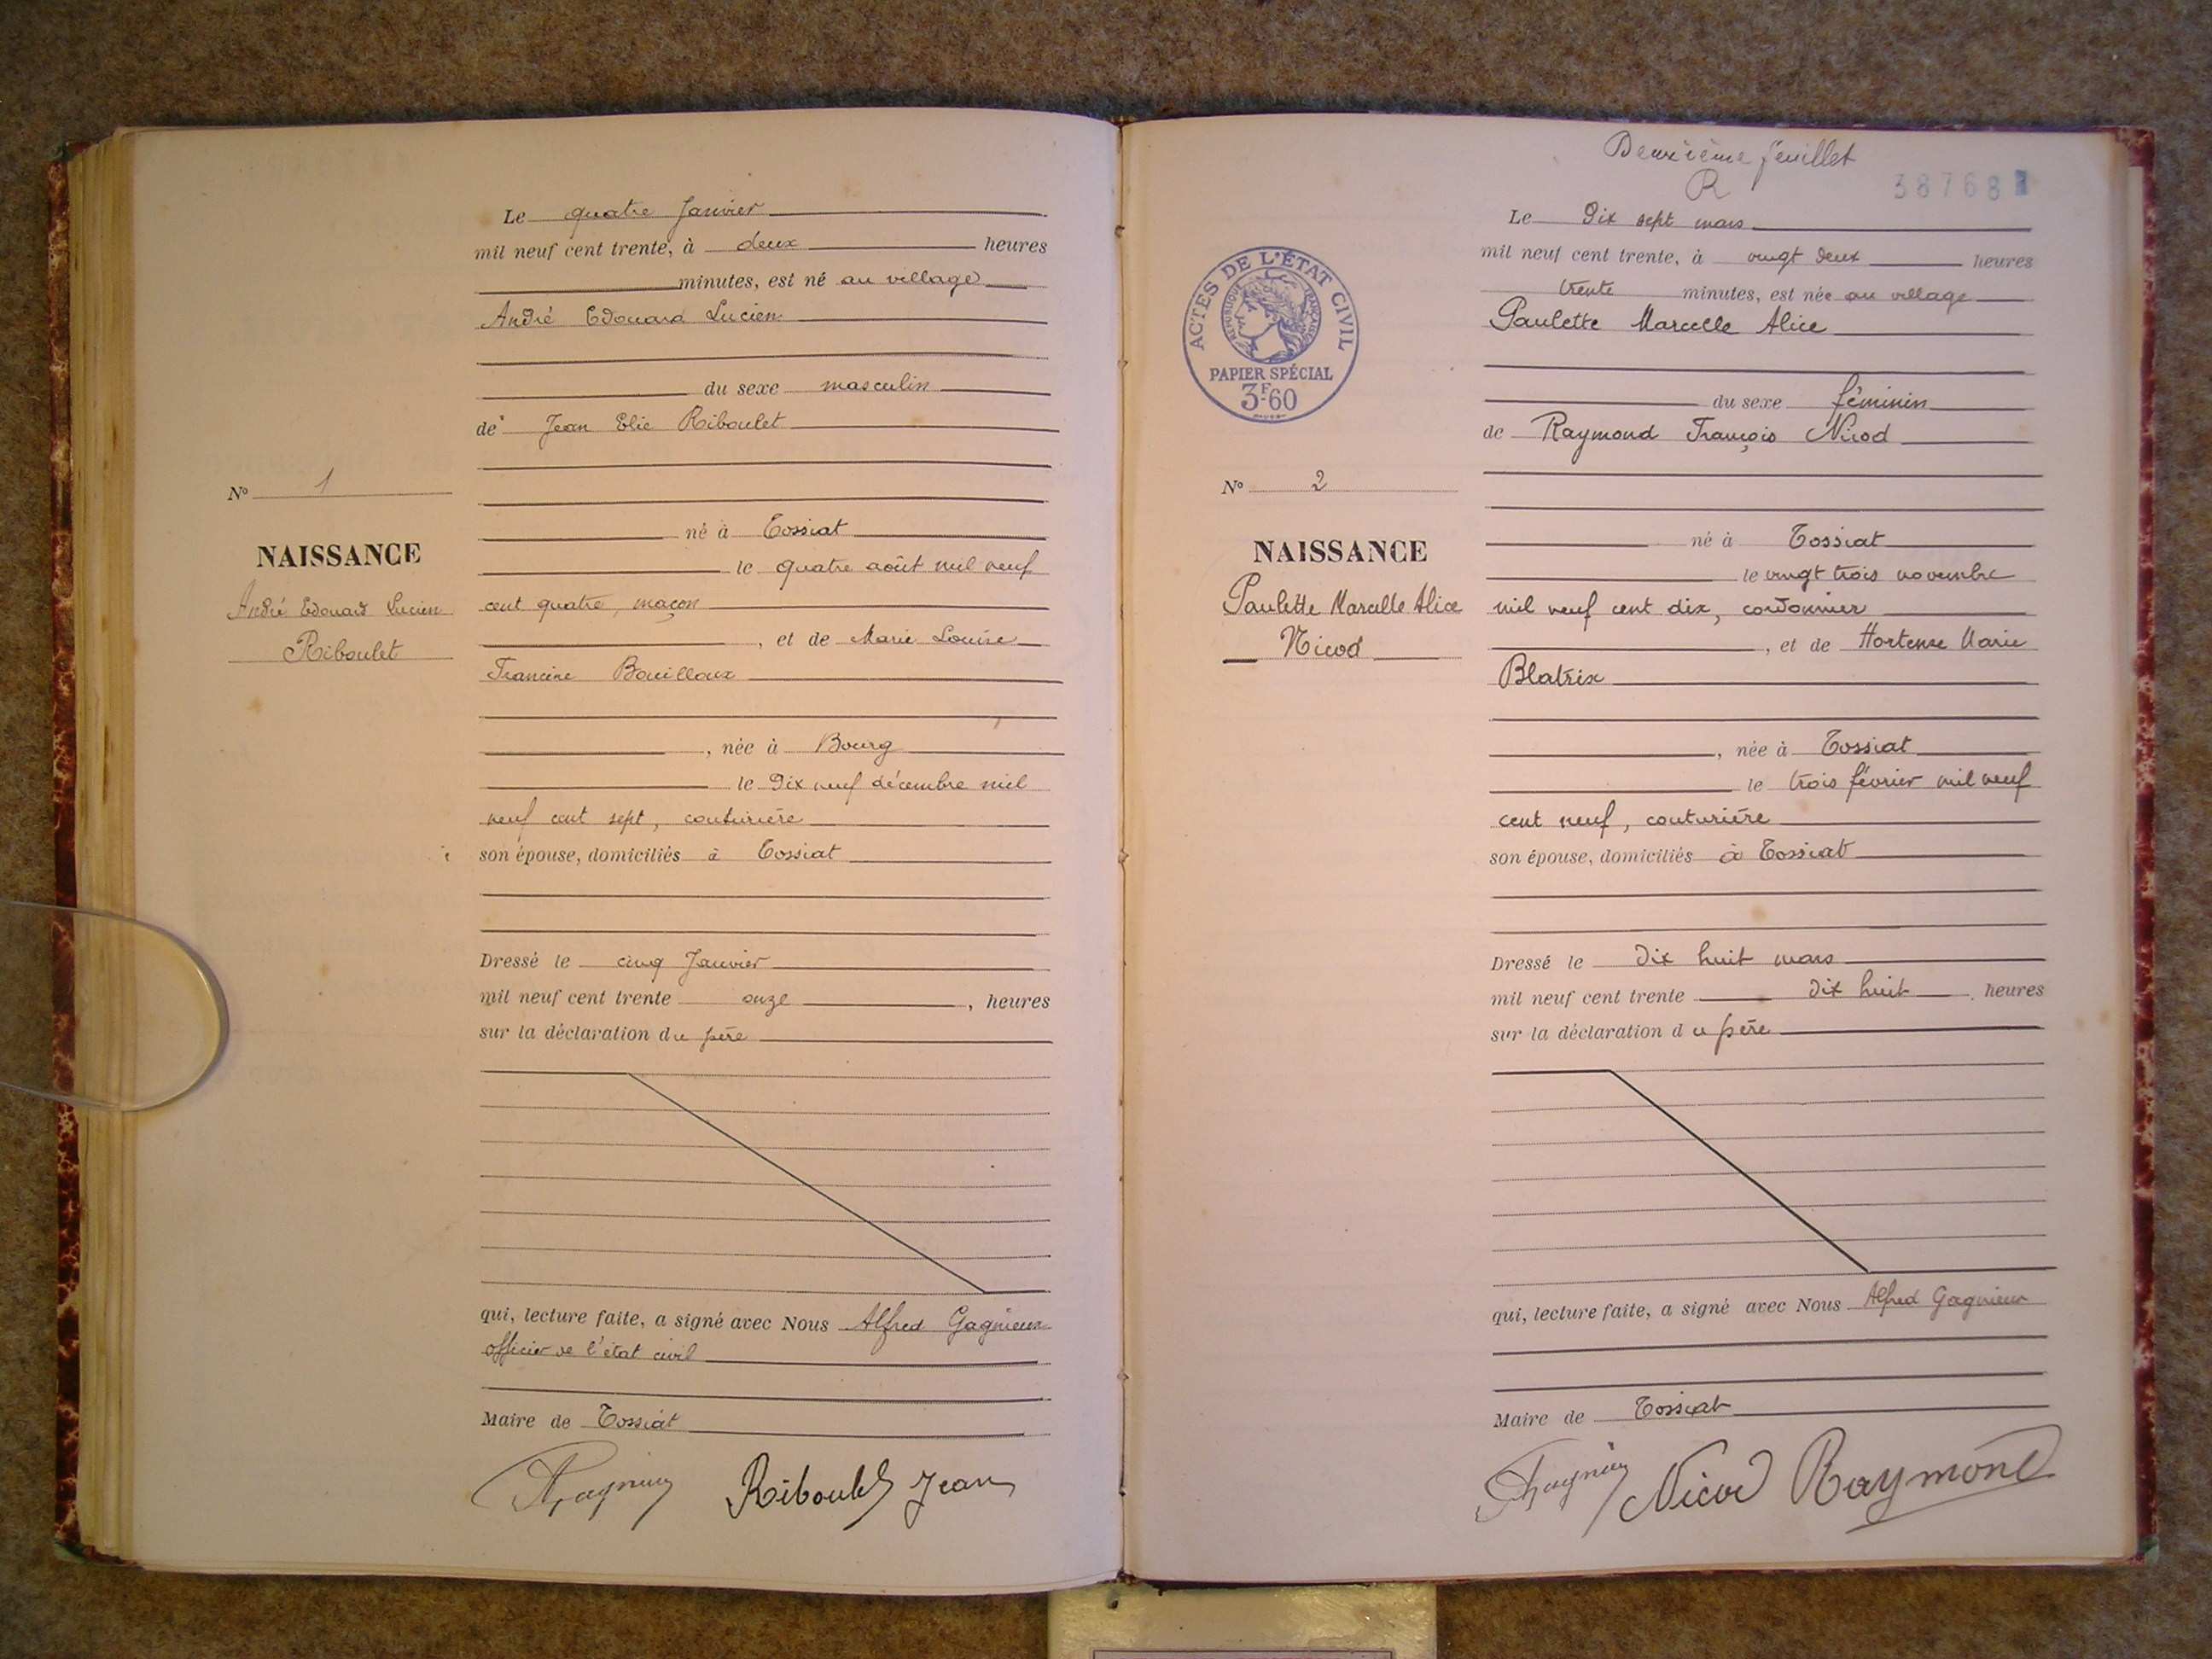 Le quatre Janvier
mil neuf cent trente, à deux heures
minutes, est né au village
André Edouard Lucien
du sexe masculin
de Jean Elie Riboulet
né à Tossiat
le quatre août mil neuf
cent quatre, maçon
, et de Marie Louise
Francine Bouilloux
, née à Bourg
le Dix neuf décembre mil
neuf cent sept, couturière
son épouse, domiciliés à Tossiat
Dressé le cinq Janvier
mil neuf cent trente onze , heures
sur la déclaration du père
qui, lecture faite, a signé avec Nous Alfred Gagnieux
officier de l'état civil
Maire de Tossiat
Riboulet Jean
No 1
NAISSANCE
André Edouard Lucien
Riboulet
Deuxième feuillet
R
38768
Le Dix sept mars
mil neuf cent trente, à vingt deux heures
trente minutes, est née au village
Paulette Marcelle Alice
du sexe féminin
de Raymond François Nicod
né à Tossiat
le vingt trois novembre
mil neuf cent dix, cordonnier
, et de Hortense Marie
Blatrix
, née à Tossiat
le trois février mil neuf
cent neuf, couturière
son épouse, domiciliés à Tossiat
Dressé le Dix huit mars
mil neuf cent trente Dix huit heures
sur la déclaration du père
qui, lecture faite, a signé avec Nous Alfred Gagnieux
Maire de Tossiat
Nicod Raymond
ACTES DE L'ÉTAT CIVIL
RÉPUBLIQUE FRANÇAISE
PAPIER SPÉCIAL
3F.60
No 2
NAISSANCE
Paulette Marcelle Alice
Nicod